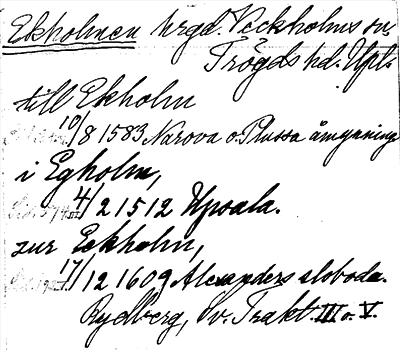 Ekholmen hrgd. Veckholms sn.
Trögds hd. Upl.
till Ekholm
10/8 1583 Narova o. Plussa åmynning
i Egholm,
4/2 1512 Upsala.
zur Eckholm,
17/12 1609 Alexanders sloboda.
Rydberg, Sv. Trakt. III o. V.